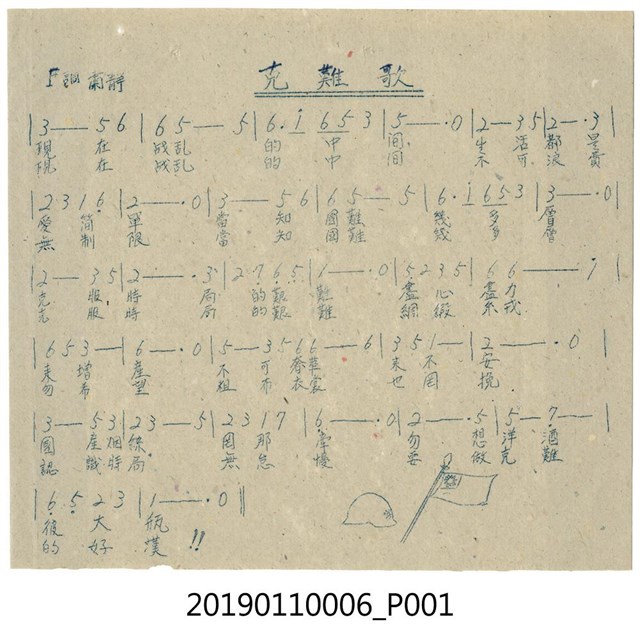 克難歌
F調 蘭靜
|3—— 5 6 |6 5—— 5 |6.i 6 5 3 |5——.0 |2—3 5 |2—.3
現 在 战乱 的 中 间 生 活 都 是
現 在 战乱 的 中 间 不 可 浪 費
2 3 1 6 |2——.0 |3—— 5 6 |6 5—— 5 |6.i 6 5 3 |3——.0|
愛 簡 單 當 知 國難 幾 多 層
無 制 限 當 知 國難 幾 多 層
|2— 3 5 |2——.3 |2 7 6 5 |1——.0 |5 2 3 5 |6 6——i |
克 服 時 局 的 艱 難 盡 心 盡 力
克 服 時 局 的 艱 難 網 緞 糸 戎
|6 5 3—|6——.0 |5—3 5 |6 6—— 6 |3 5 1— |2——.0 |
來 增 產 不 可 奢華 來 不 安
勿 希 望 粗 布 衣裳 也 同 挽
|3—— 5 3 |2 3—— 5 |2 3 1 7 |6.——.0 |2——.5 |5—7.—|
國 產 烟 絲 因 那 牽 勿 想 洋 酒
認 識 時 局 無 怠 慢 要 做 克 難
|6. 5. 2 3 |1——.0 ||
後 大 瓶
的 好 漢 !!
20190110006_P001